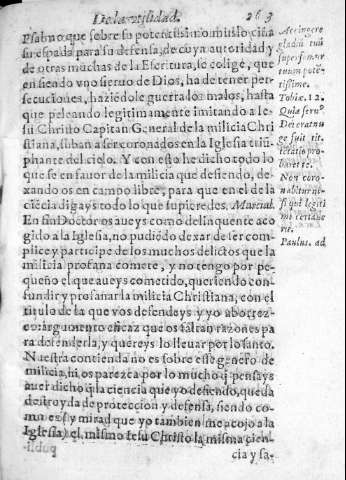 De la vtilidad. 263
Psalmo que sobre su potentissimo muslo ciña
su espada para su defensa, de cuya autoridad y
de otras muchas de la Escritura, se colige, que
en siendo vno sieruo de Dios, ha de tener per-
secuciones, haziēdole guerra los malos, hasta
que peleando legitimamente imitando a Ie-
su Christo Capitan General de la milicia Chri
stiana, suban a ser coronados en la Iglesia triū-
phante del cielo. Y con esto he dicho todo lo
que se en fauor de la milicia que defiendo, de-
xando os en campo libre, para que en el de la
ciēcia digays todo lo que supieredes. Marcial.
En fin Doctor os aueys como delinquente aco
gido a la Iglesia, no pudiēdo dexar de ser com
plice y participe de los muchos delictos que la
milicia profana comete, y no tengo por pe-
queño el que aueys cometido, queriendo con-
fundir y profanar la milicia Christiana, con el
titulo de la que vos defendeys y yo aborrez-
co: argumento eficaz que os faltan razones pa
ra defenderla, y quereys lo lleuar por lo santo.
Nuestra contienda no es sobre esse genero de
milicia, ni os parezca por lo mucho q̄ pensays
auer dicho q̄ la ciencia que yo defiendo, queda
destroyda de proteccion y defensa, siendo co-
mo es (y mirad que yo tambien me acojo a la
Iglesia) el mismo Iesu Christo la misma cien-
cia y sa-
Accingere
gladiū tuū
super femur
tuum potē-
tissime.
Tobiæ. 12.
Quia
Dei
Non coro-
nabitur
Paulus. ad